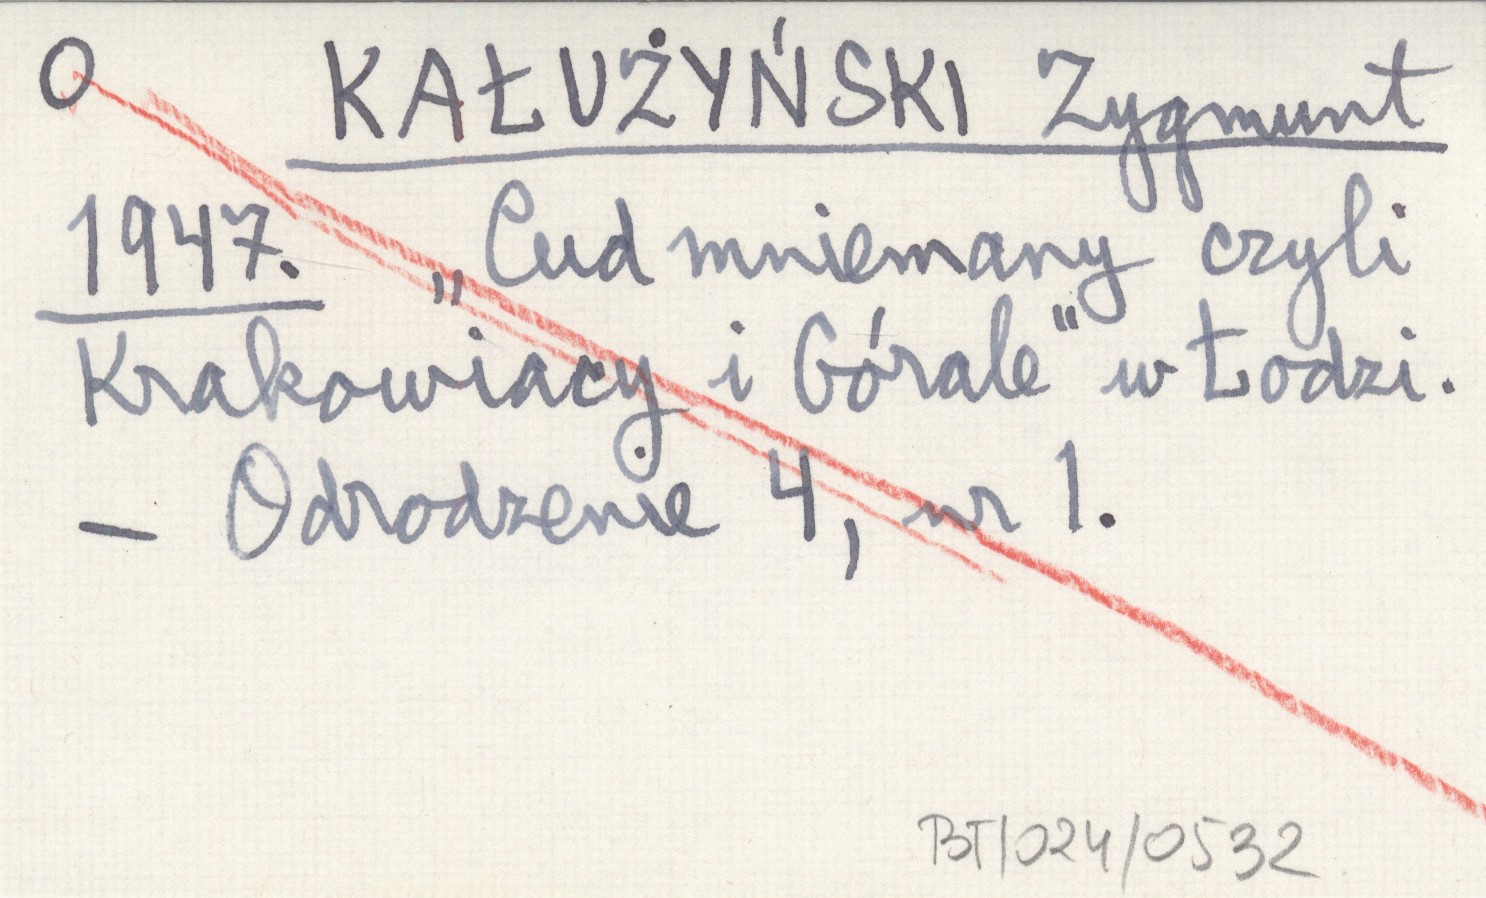 O KAŁUŻYŃSKI Zygmunt
1947. „Cud mniemany czyli
Krakowiacy i Górale" w Łodzi.
– Odrodzenie 4, nr 1.
BT/024/0532